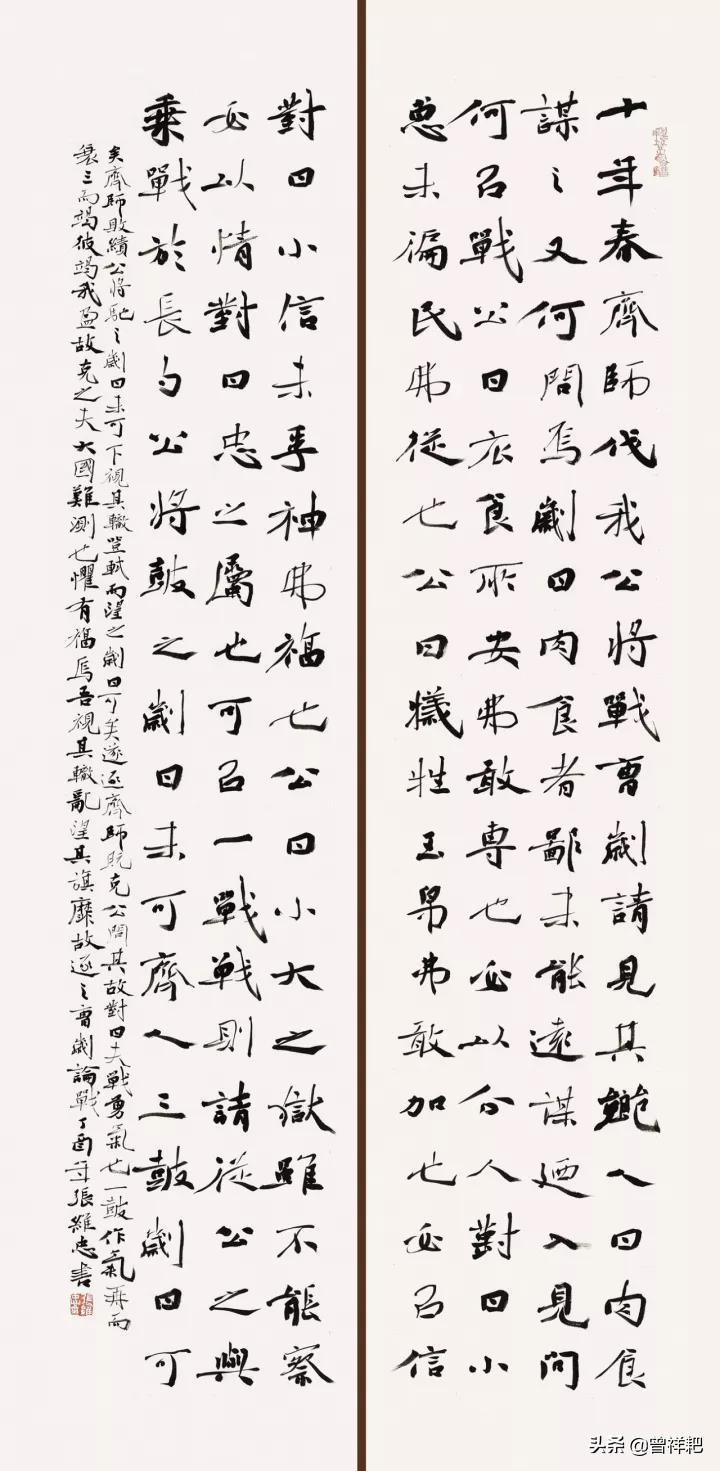 十年春齊師伐我公將戰曹劌請見其鄉人曰肉食
謀之又何間焉劌曰肉食者鄙未能遠謀迺入見問
何㠯戰公曰衣食所安弗敢專也必以分人對曰小
惠未徧民弗從也公曰犧牲玉帛弗敢加也必㠯信
對曰小信未孚神弗福也公曰小大之獄雖不能察
必以情對曰忠之屬也可㠯一戰戰則請從公之與
乘戰於長勺公將鼓之劌曰未可齊人三鼓劌曰可
矣齊師敗績公將馳之劌曰未可下視其轍登軾而望之劌曰可矣遂逐齊師既克公問其故對曰夫戰勇氣也一鼓作氣再而
衰三而竭彼竭我盈故克之夫大國難測也懼有福焉吾視其轍亂望其旗靡故逐之曹劌論戰丁酉年張維忠書
头条 @曾祥耙